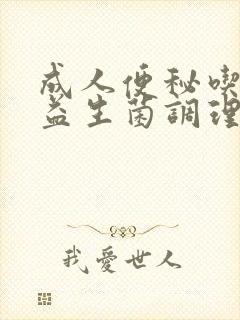 成人便秘喫
益生菌調理
我愛世人